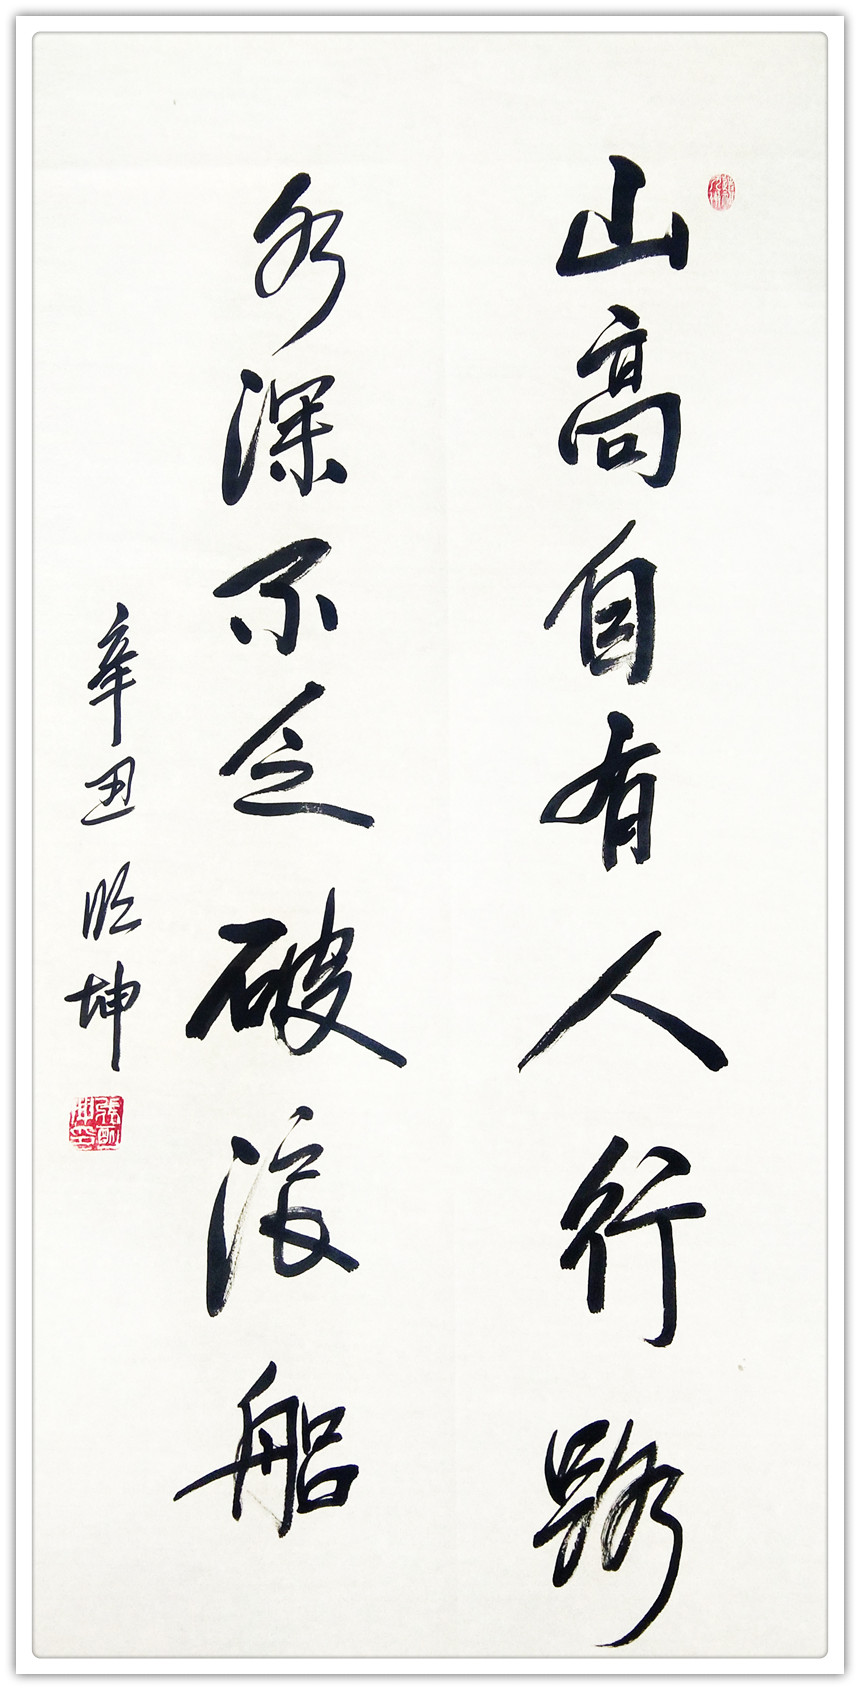 山高自有人行路
水深不乏破浪船
辛丑 坤